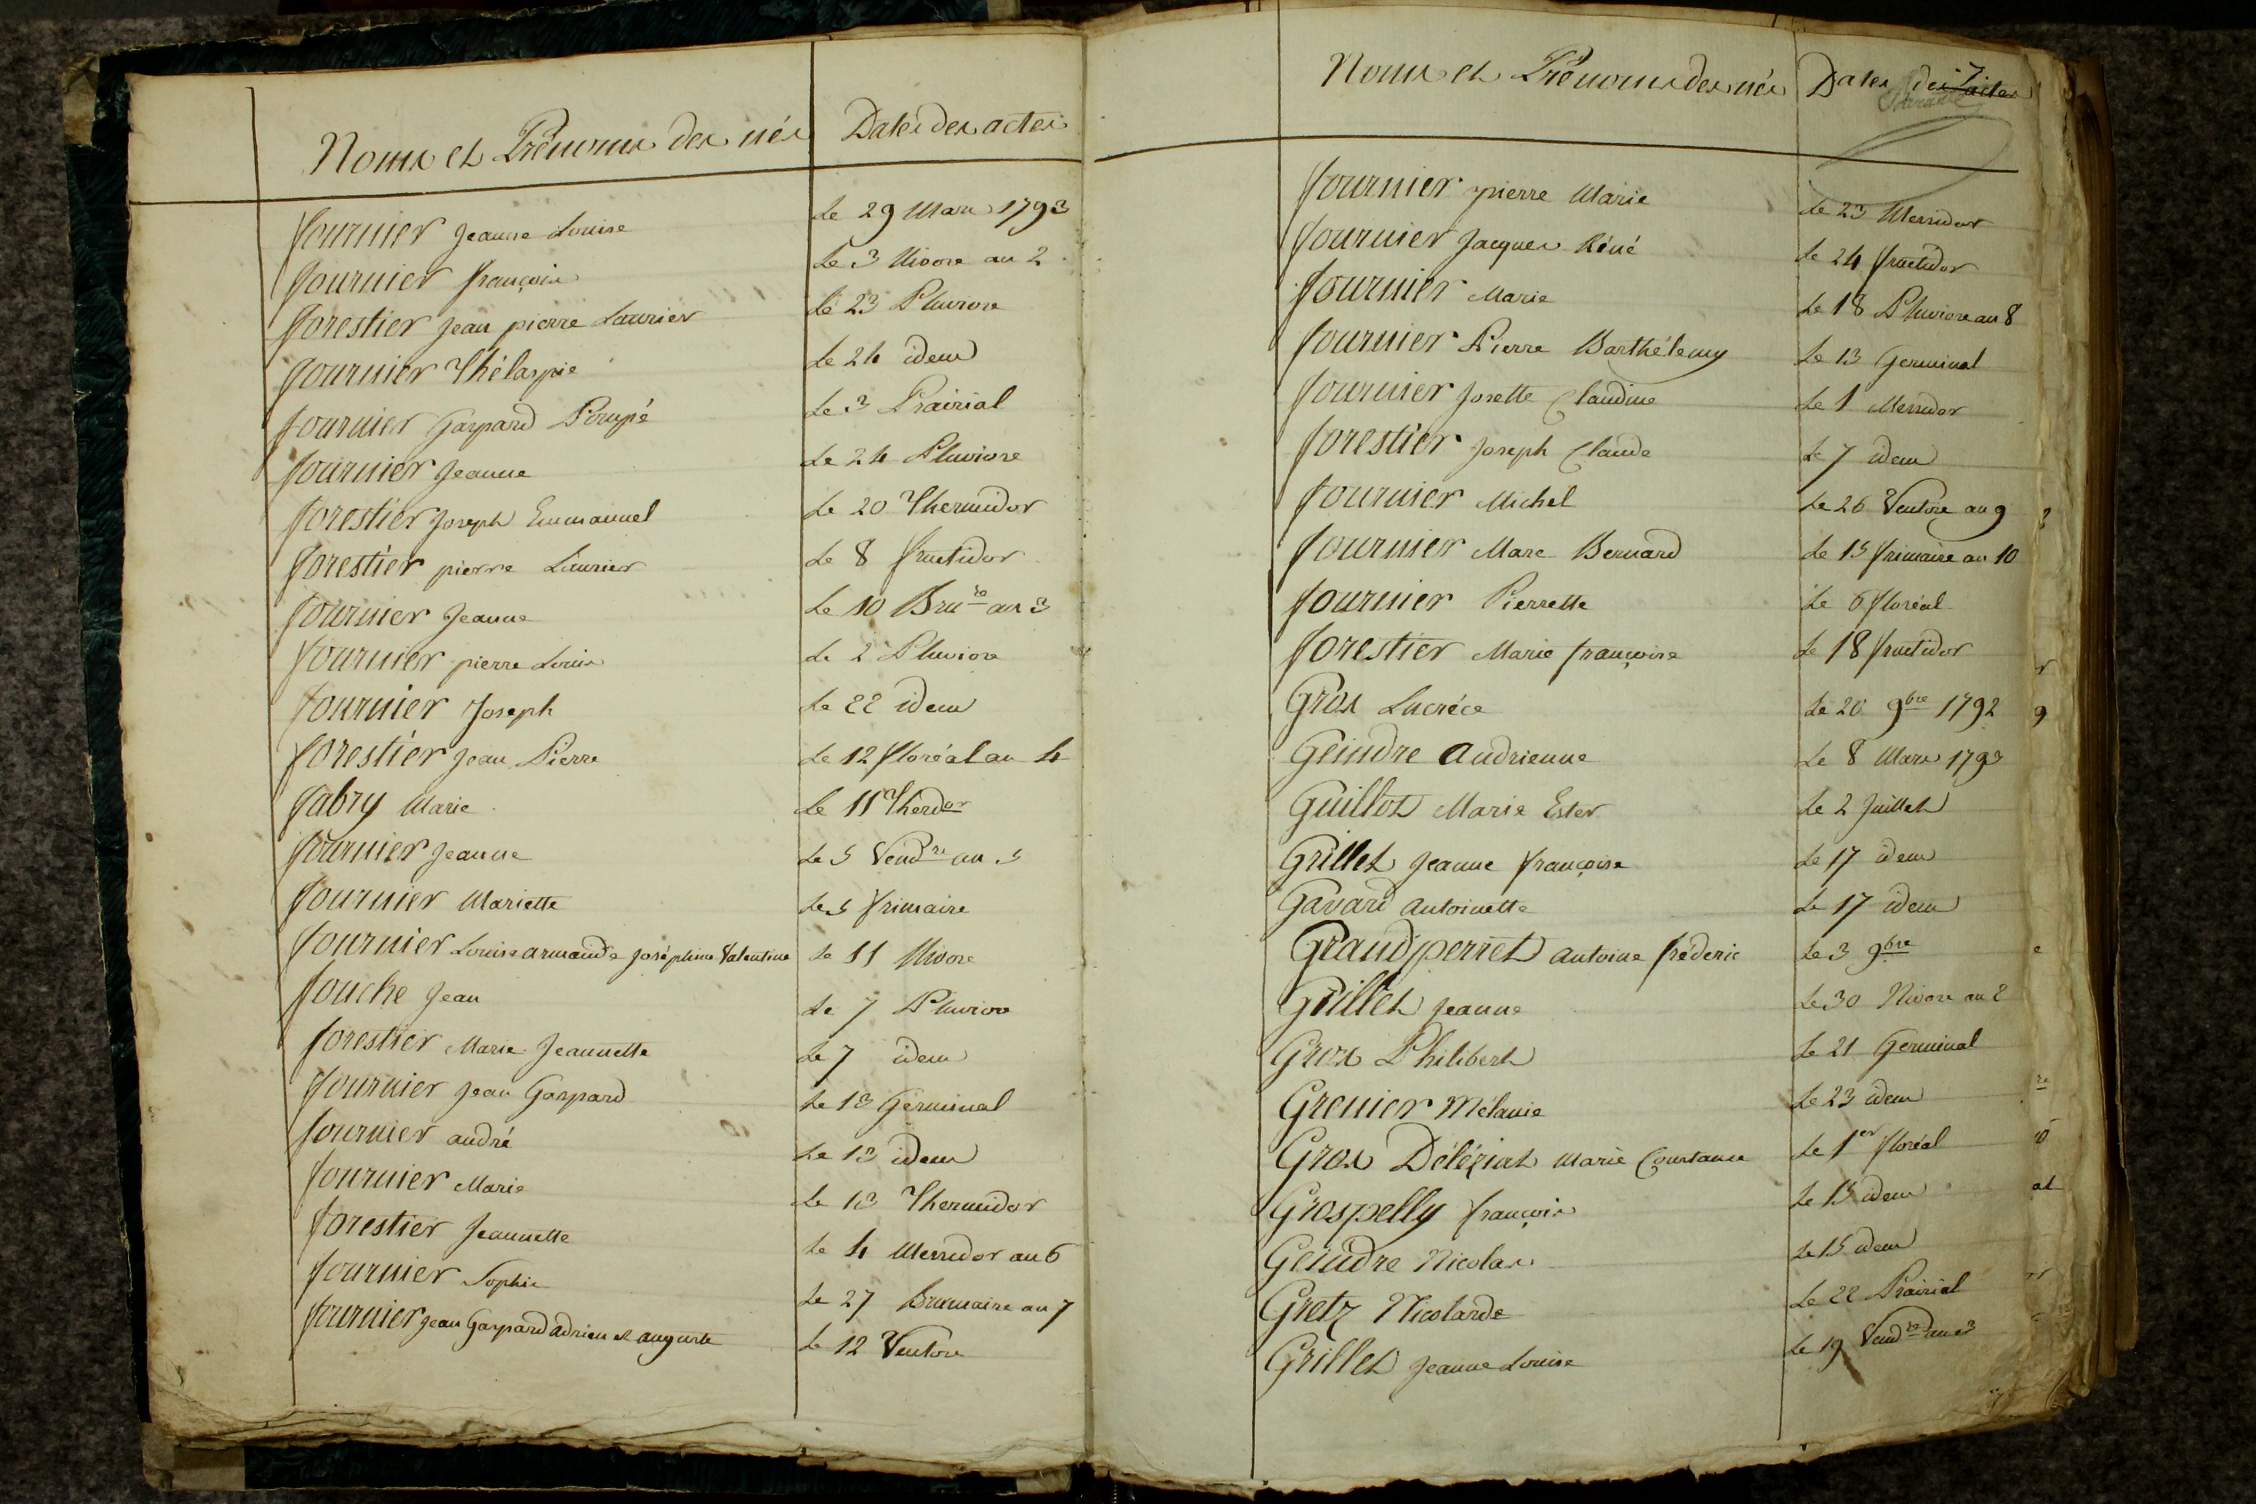 Noms et Prénoms des nés Dates des actes
fournier Jeanne Louise Le 29 Mars 1793
fournier françois Le 3 Nivose an 2
forestier Jean pierre Laurier Le 23 Pluviose
fournier Thélaspie Le 24 idem
fournier Gaspard Poupé Le 3 Prairial
fournier Jeanne Le 24 Pluviose
forestier Joseph Emmanuel Le 20 Thermidor
forestier pierre Laurier Le 8 fructidor
fournier Jeanne Le 10 Bru.re an 3
fournier pierre Louis Le 2 Pluviose
fournier Joseph Le 22 idem
forestier Jean Pierre Le 12 floréal an 4
fabry Marie Le 11 Therdor
fournier Jeanne Le 5 Vendre an 5
fournier Mariette Le 5 frimaire
fournier Louise armande Joséphine Valentine Le 11 Nivose
fouche Jean Le 7 Pluviose
forestier Marie Jeannette Le 7 idem
fournier Jean Gaspard Le 13 Germinal
fournier andré Le 13 idem
fournier Marie Le 13 Thermidor
forestier Jeannette Le 4 Messidor an 6
fournier Sophie Le 27 Brumaire an 7
fournier Jean Gaspard adrien et auguste Le 12 Ventose
Noms et Prénoms des nés Dates des actes
fournier pierre Marie Le 23 Messidor
fournier Jacques Réné Le 24 fructidor
fournier Marie Le 18 Pluviose an 8
fournier Pierre Barthélemy Le 13 Germinal
fournier Josette Claudine Le 1 Messidor
forestier Joseph Claude Le 7 idem
fournier Michel Le 26 Ventose an 9
fournier Marc Bernard Le 15 frimaire an 10
fournier Pierrette Le 6 floréal
forestier Marie françoise Le 18 fructidor
Gros Lucréce Le 20 9bre 1792
Geindre Andrienne Le 8 Mars 1793
Guillot Marie Ester Le 2 Juillet
Grillet Jeanne françoise Le 17 idem
Gavard antoinette Le 17 idem
Grandperret antoine fréderic Le 3 9bre
Grillet Jeanne Le 30 Nivose an 2
Gros Philibert Le 21 Germinal
Grenier Mélanie Le 23 idem
Gros Déléziat Marie Constance Le 1er floréal
Grospelly françois Le 15 idem
Geindre Nicolas Le 15 idem
Gretz Nicolarde Le 22 Prairial
Grillet Jeanne Louise Le 19 Vendre an 3